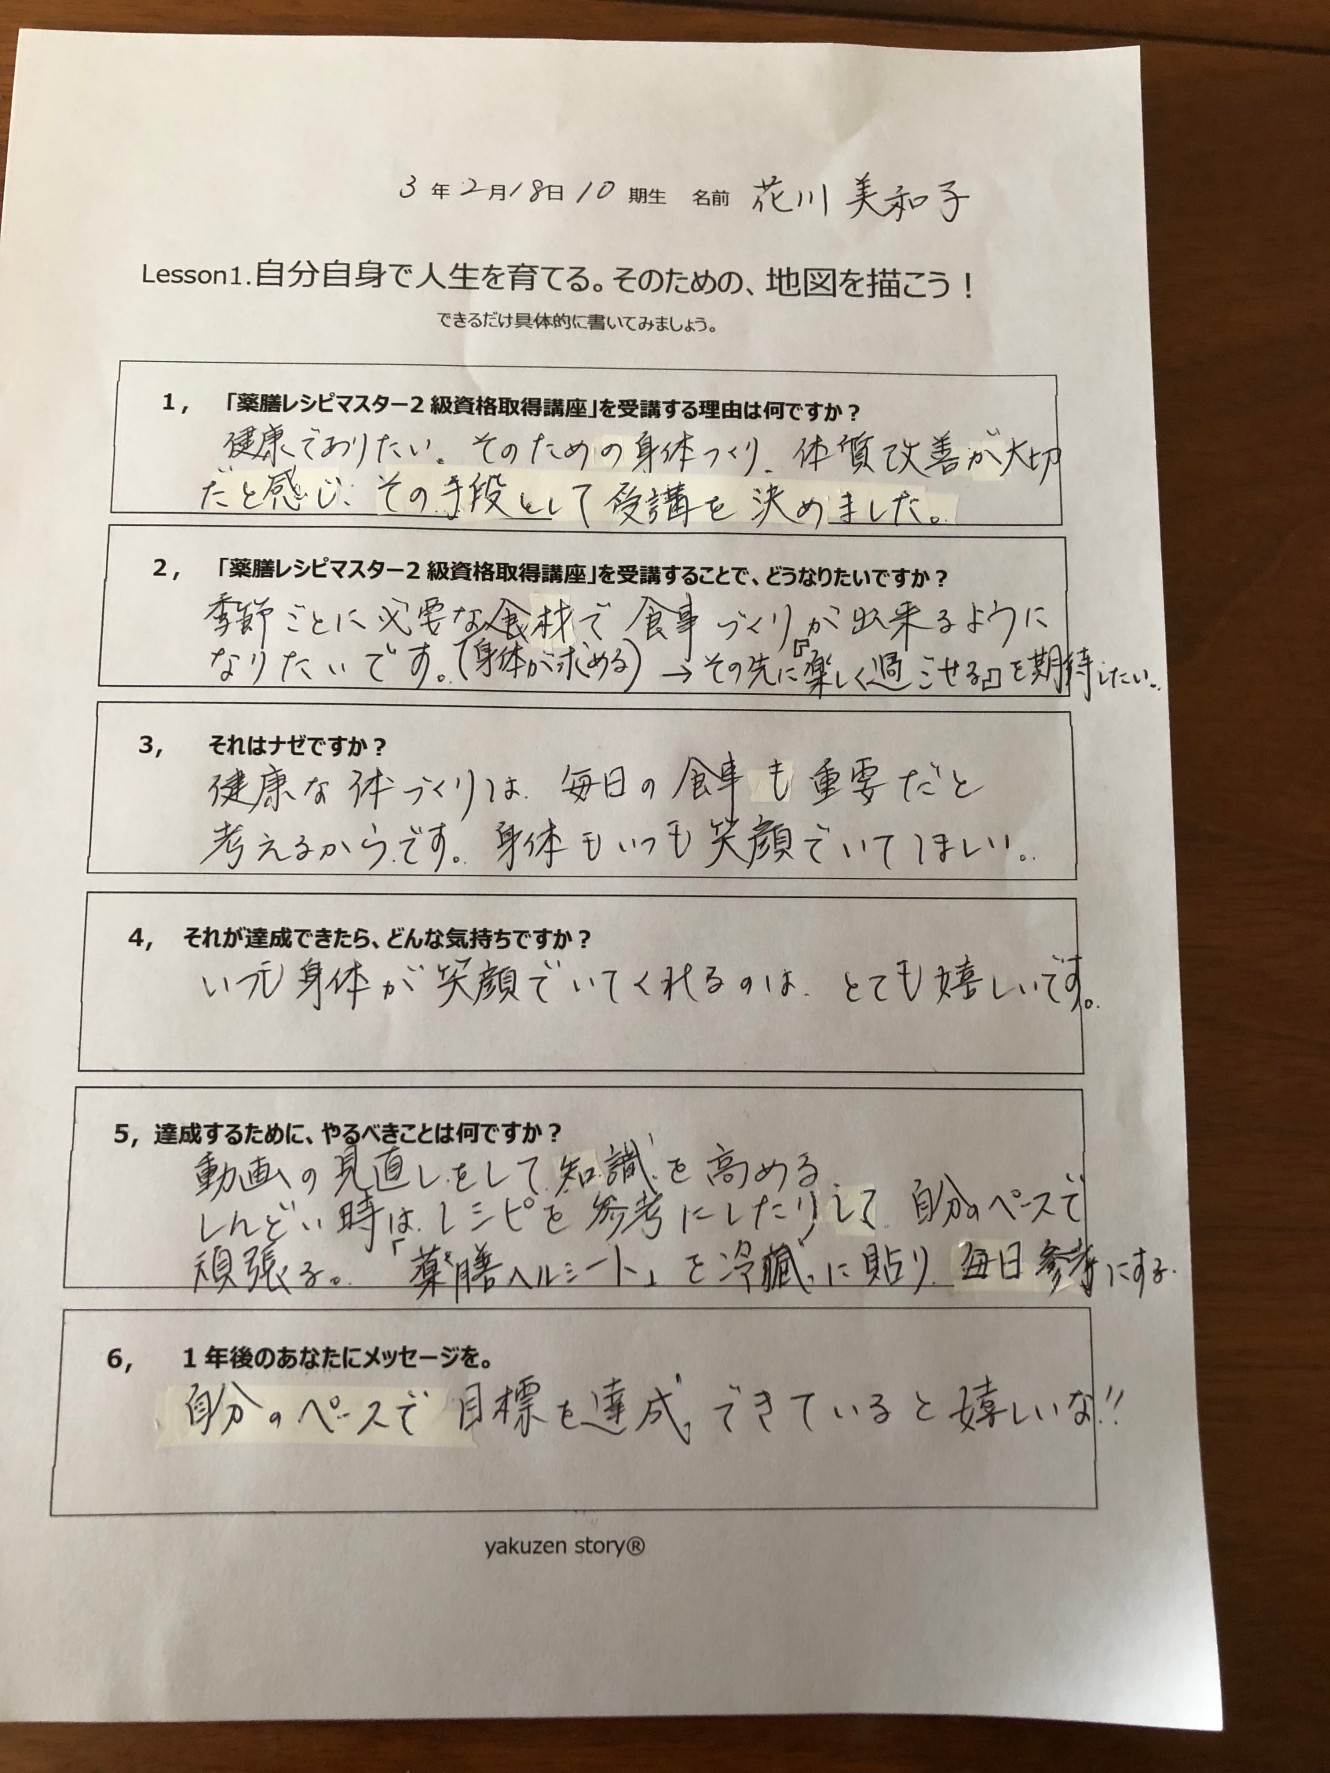 3年2月18日10期生 名前 花川美和子
Lesson1.自分自身で人生を育てる。そのための、地図を描こう！
できるだけ具体的に書いてみましょう。
1, 「薬膳レシピマスター2級資格取得講座」を受講する理由は何ですか？
健康でありたい。そのための身体づくり、体質改善が大切
だと感じ、その手段として受講を決めました。
2, 「薬膳レシピマスター2級資格取得講座」を受講することで、どうなりたいですか？
季節ごとに必要な食材で食事づくりが出来るように
なりたいです。(身体が求める)→その先に『楽しく過ごせる』を期待したい。
3, それはナゼですか？
健康な体づくりは、毎日の食事も重要だと
考えるからです。身体もいつも笑顔でいてほしい。
4, それが達成できたら、どんな気持ちですか？
いつも身体が笑顔でいてくれるのは、とても嬉しいです。
5, 達成するために、やるべきことは何ですか？
動画の見直しをして知識を高める
しんどい時は、レシピを参考にしたりして、自分のペースで
頑張る。「薬膳ヘルシート」を冷蔵に貼り、毎日参考にする。
6, 1年後のあなたにメッセージを。
自分のペースで目標を達成できていると嬉しいな!!
yakuzen story®